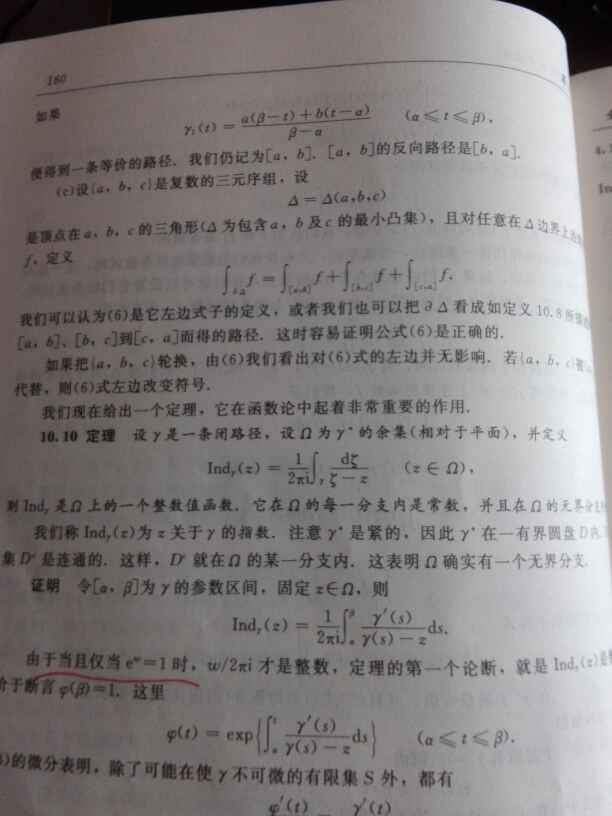 160
如果
γ₁(t) = a(β−t)+b(t−α) / β−α (α⩽t⩽β),
便得到一条等价的路径. 我们仍记为[a, b]. [a, b]的反向路径是[b, a].
(c)设{a, b, c}是复数的三元序组, 设
Δ = Δ(a,b,c)
是顶点在a, b, c的三角形(Δ为包含a, b及c的最小凸集), 且对任意在Δ边界上
f, 定义
∫_{∂Δ} f = ∫_{[a,b]} f + ∫_{[b,c]} f + ∫_{[c,a]} f,
我们可以认为(6)是它左边式子的定义, 或者我们也可以把∂Δ看成如定义10.8所
[a, b]、[b, c]到[c, a]而得的路径. 这时容易证明公式(6)是正确的.
如果把{a, b, c}轮换, 由(6)我们看出对(6)式的左边并无影响. 若{a, b, c}
代替, 则(6)式左边改变符号.
我们现在给出一个定理, 它在函数论中起着非常重要的作用.
10.10 定理 设γ是一条闭路径, 设Ω为γ*的余集(相对于平面), 并定义
Ind_γ(z) = 1/2πi ∫_γ dζ/ζ−z (z∈Ω),
则Ind_γ是Ω上的一个整数值函数. 它在Ω的每一分支内是常数, 并且在Ω的无界
我们称Ind_γ(z)为z关于γ的指数. 注意γ*是紧的, 因此γ*在一有界圆盘D内
集Dᶜ是连通的. 这样, Dᶜ就在Ω的某一分支内. 这表明Ω确实有一个无界分支.
证明 令[α, β]为γ的参数区间, 固定z∈Ω, 则
Ind_γ(z) = 1/2πi ∫_α^β γ′(s)/γ(s)−z ds.
由于当且仅当e^w=1时, w/2πi才是整数, 定理的第一个论断, 就是Ind_γ(z)
价于断言φ(β)=1. 这里
φ(t) = exp{∫_α^t γ′(s)/γ(s)−z ds} (α⩽t⩽β).
的微分表明, 除了可能在使γ不可微的有限集S外, 都有
φ′(t) γ′(t)